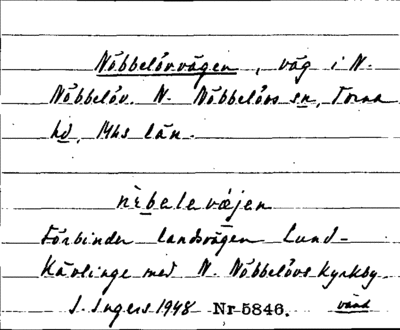 Nöbbelövvägen, väg i N.
Nöbbelöv N. Nöbbelövs sn, Torna
hd, Mhs län.
nèbelevæjen
Förbinder landsvägen Lund-
Kävlinge med N. Nöbbelövs kyrkby.
I. Ingers 1948 Nr 5846. vänd